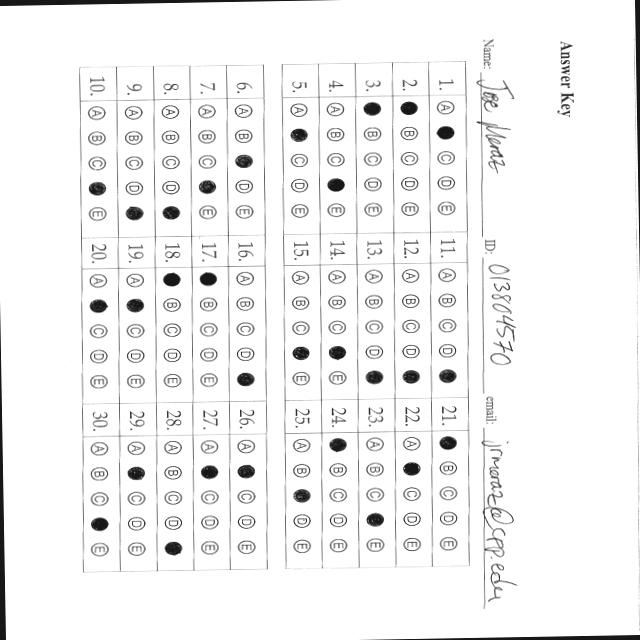 Answer Key
Name: Joe Meraz ID: 013804570 email: jrmeraz@cpp.edu
1. Ⓐ ● Ⓒ Ⓓ Ⓔ 11. Ⓐ Ⓑ Ⓒ Ⓓ ● 21. ● Ⓑ Ⓒ Ⓓ Ⓔ
2. ● Ⓑ Ⓒ Ⓓ Ⓔ 12. Ⓐ Ⓑ Ⓒ Ⓓ ● 22. Ⓐ ● Ⓒ Ⓓ Ⓔ
3. ● Ⓑ Ⓒ Ⓓ Ⓔ 13. Ⓐ Ⓑ Ⓒ Ⓓ ● 23. Ⓐ Ⓑ Ⓒ ● Ⓔ
4. Ⓐ Ⓑ Ⓒ ● Ⓔ 14. Ⓐ Ⓑ Ⓒ ● Ⓔ 24. ● Ⓑ Ⓒ Ⓓ Ⓔ
5. Ⓐ ● Ⓒ Ⓓ Ⓔ 15. Ⓐ Ⓑ Ⓒ ● Ⓔ 25. Ⓐ Ⓑ ● Ⓓ Ⓔ
6. Ⓐ Ⓑ ● Ⓓ Ⓔ 16. Ⓐ Ⓑ Ⓒ Ⓓ ● 26. Ⓐ ● Ⓒ Ⓓ Ⓔ
7. Ⓐ Ⓑ Ⓒ ● Ⓔ 17. ● Ⓑ Ⓒ Ⓓ Ⓔ 27. Ⓐ ● Ⓒ Ⓓ Ⓔ
8. Ⓐ Ⓑ Ⓒ Ⓓ ● 18. ● Ⓑ Ⓒ Ⓓ Ⓔ 28. Ⓐ Ⓑ Ⓒ Ⓓ ●
9. Ⓐ Ⓑ Ⓒ Ⓓ ● 19. Ⓐ ● Ⓒ Ⓓ Ⓔ 29. Ⓐ ● Ⓒ Ⓓ Ⓔ
10. Ⓐ Ⓑ Ⓒ ● Ⓔ 20. Ⓐ ● Ⓒ Ⓓ Ⓔ 30. Ⓐ Ⓑ Ⓒ ● Ⓔ